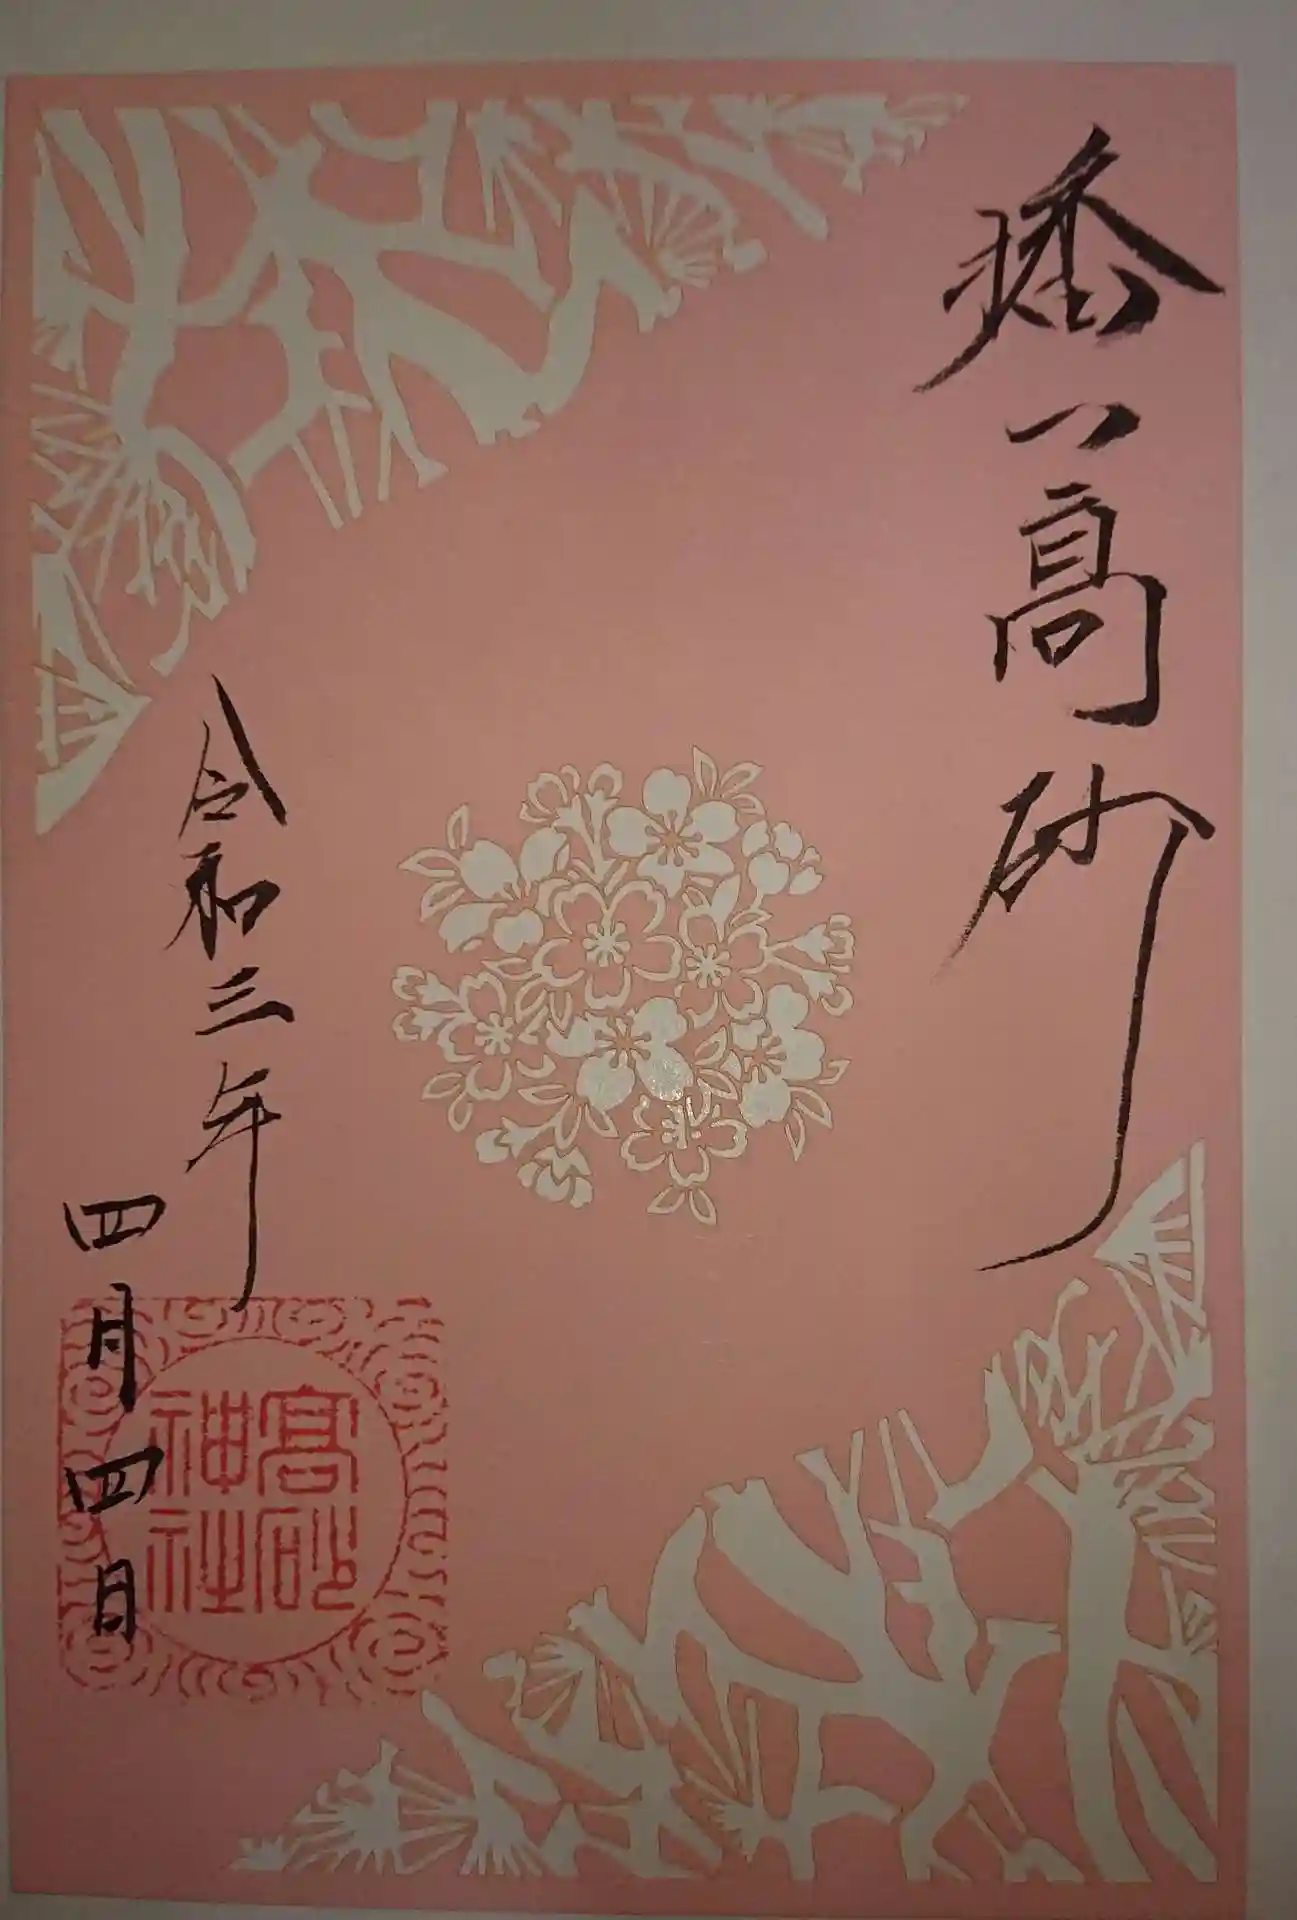 播州髙砂
令和三年
四月四日
髙砂
神社